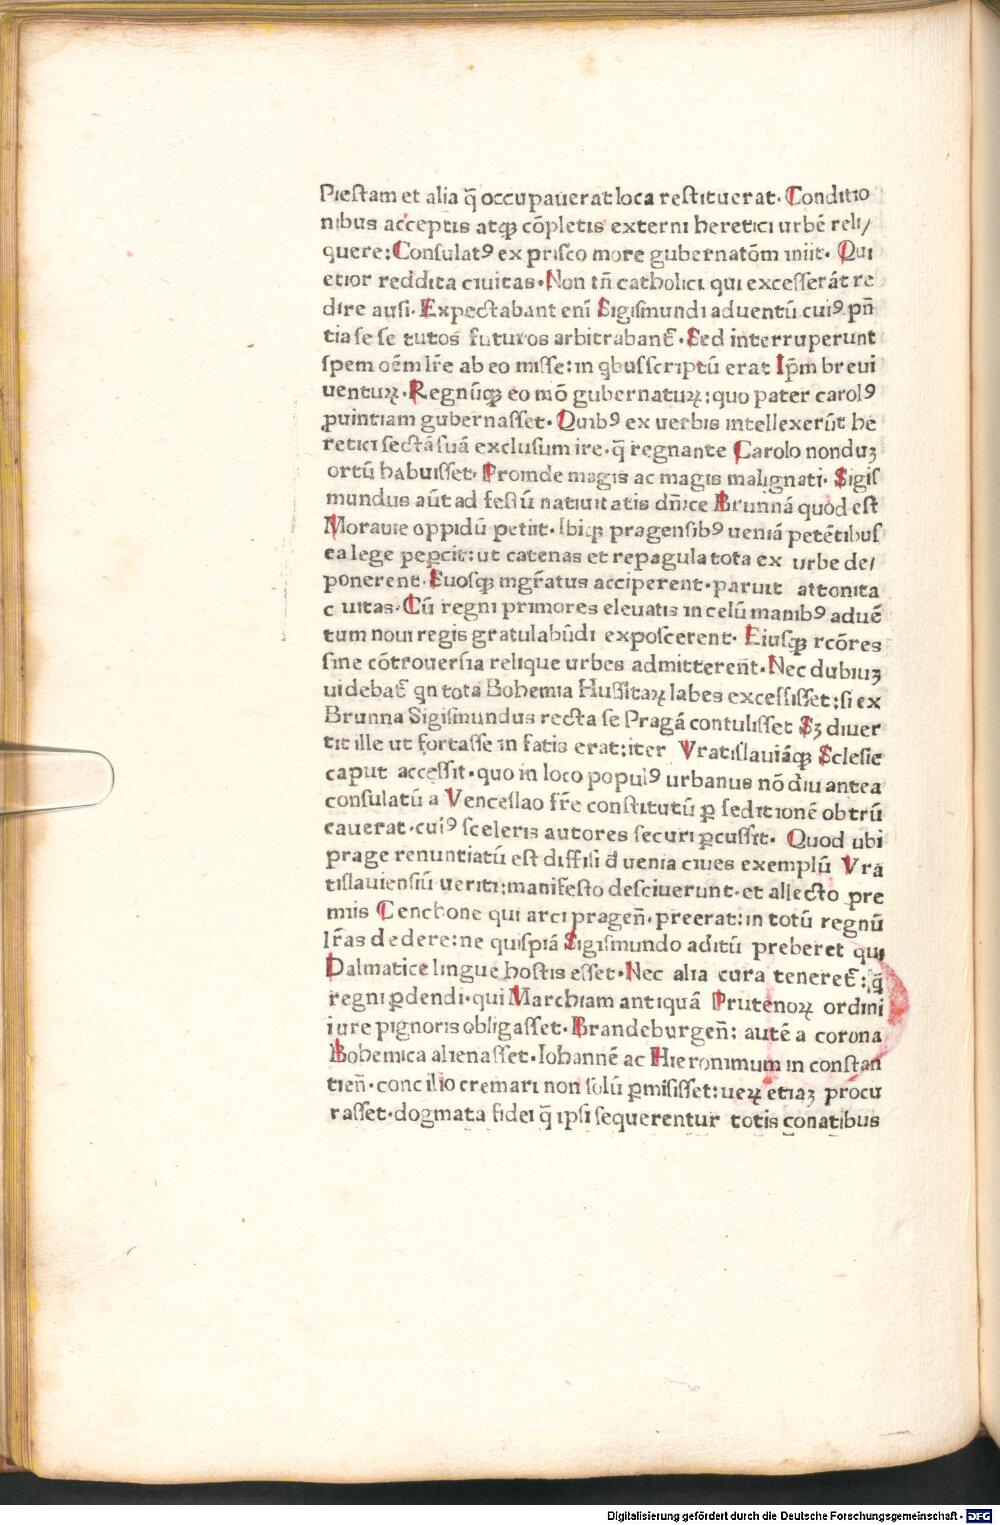 Pieſtam et alia q̄ occupauerat loca reſtituerat. Conditio
nibus acceptis atqꝫ cōpletis externi heretici urbē reli/
quere: Conſulatꝰ ex priſco more gubernatōm iniit. Qui
etior reddita ciuitas. Non tn̄ catholici qui exceſſerāt re
dire auſi. Expectabant enī Sigiſmundi aduentū cuiꝰ pn̄
tia ſe ſe tutos futuros arbitrabant̄. Sed interruperunt
ſpem oēm lr̄e ab eo miſſe: in qbus ſcriptū erat Ip̄m breui
uenturꝝ. Regnūqꝫ eo mō gubernaturꝝ: quo pater carolꝰ
ꝓuintiam gubernaſſet. Quibꝰ ex uerbis intellexerūt he
retici ſectā ſuā excluſum ire. q̄ regnante Carolo nonduꝫ
ortū habuiſſet. Proinde magis ac magis malignati. Sigiſ
mundus aūt ad feſtū natiuitatis dn̄ice Brunnā quod eſt
Morauie oppidū petiit. Ibiqꝫ pragenſibꝰ ueniā petētibuſ
ea lege peꝑcit: ut catenas et repagula tota ex urbe de/
ponerent. Suoſqꝫ ingr̄atus acciperent. paruit attonita
c uitas. Cū regni primores eleuatis in celū manibꝰ aduē
tum noui regis gratulabūdi expoſcerent. Eiuſqꝫ rcōres
ſine cōtrouerſia relique urbes admitterent̄. Nec dubiuꝫ
uidebat̄ qn tota Bohemia Huſſitaꝝ labes exceſſiſſet: ſi ex
Brunna Sigiſmundus recta ſe Pragā contuliſſet Sꝫ diuer
tit ille ut fortaſſe in fatis erat: iter Vratiſlauiāqꝫ Scleſie
caput acceſſit. quo in loco populꝰ urbanus nō diu antea
conſulatū a Venceſlao fr̄e conſtitutū ꝑ ſeditionē obtrū
cauerat. cuiꝰ ſceleris autores ſecuri ꝑcuſſit. Quod ubi
prage renuntiatū eſt diffiſi d uenia ciues exemplū Vra
tiſlauienſiū ueriti: manifeſto deſciuerunt. et allecto pre
miis Cenchone qui arci pragen̄. preerat: in totū regnū
lr̄as dedere: ne quiſpiā Sigiſmundo aditū preberet qui
Dalmatice lingue hoſtis eſſet. Nec alia cura teneret̄: q̄
regni ꝑdendi. qui Marchiam antiquā Prutenoꝝ ordini
iure pignoris obligaſſet. Brandeburgen̄: autē a corona
Bohemica alienaſſet. Iohannē ac Hieronimum in conſtan
tien̄. concilio cremari non ſolū ꝑmiſiſſet: ueꝝ etiaꝫ procu
raſſet. dogmata fidei q̄ ipſi ſequerentur totis conatibus
Digitalisierung gefördert durch die Deutsche Forschungsgemeinschaft - DFG